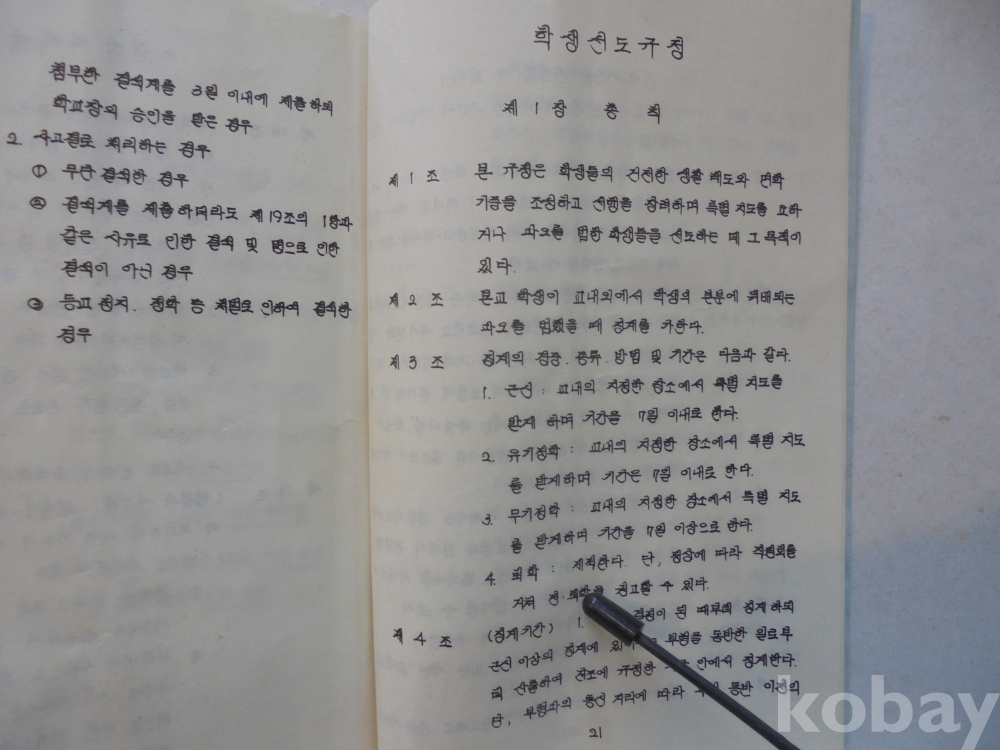 첨부한 결석계를 3일 이내에 제출하되
학교장의 승인을 받은 경우
2. 사고결로 처리하는 경우
① 무단 결석한 경우
② 결석계를 제출하더라도 제19조의 1항과
같은 사유로 인한 결석 및 병으로 인한
결석이 아닌 경우
③ 등교 정지, 정학 등 처벌로 인하여 결석한
경우
학생선도규정
제 1 장 총 칙
제 1 조 본 규정은 학생들의 건전한 생활 태도와 면학
기풍을 조성하고 선행을 장려하며 특별 지도를 요하
거나 과오를 범한 학생들을 선도하는 데 그 목적이
있다.
제 2 조 본교 학생이 교내외에서 학생의 본분에 위배되는
과오를 범했을 때 징계를 가한다.
제 3 조 징계의 경중. 종류. 방법 및 기간은 다음과 같다.
1. 근신 : 교내의 지정한 장소에서 특별 지도를
받게 하며 기간을 7일 이내로 한다.
2. 유기정학 : 교내의 지정한 장소에서 특별 지도
를 받게하며 기간은 7일 이내로 한다.
3. 무기정학 : 교내의 지정한 장소에서 특별 지도
를 받게하며 기간을 7일 이상으로 한다.
4. 퇴학 : 제적한다. 단, 정상에 따라 직원회를
거쳐 권고할 수 있다.
제 4 조 (징계기간) 1. 결정이 된 때부터 징계하되
근신 이상의 징계에 부형을 동반한 일로부
터 산출하여 전조에 규정한 안에서 징계한다.
단, 부형과의 통신 거리에 따라 동반 이전의
21
kobay